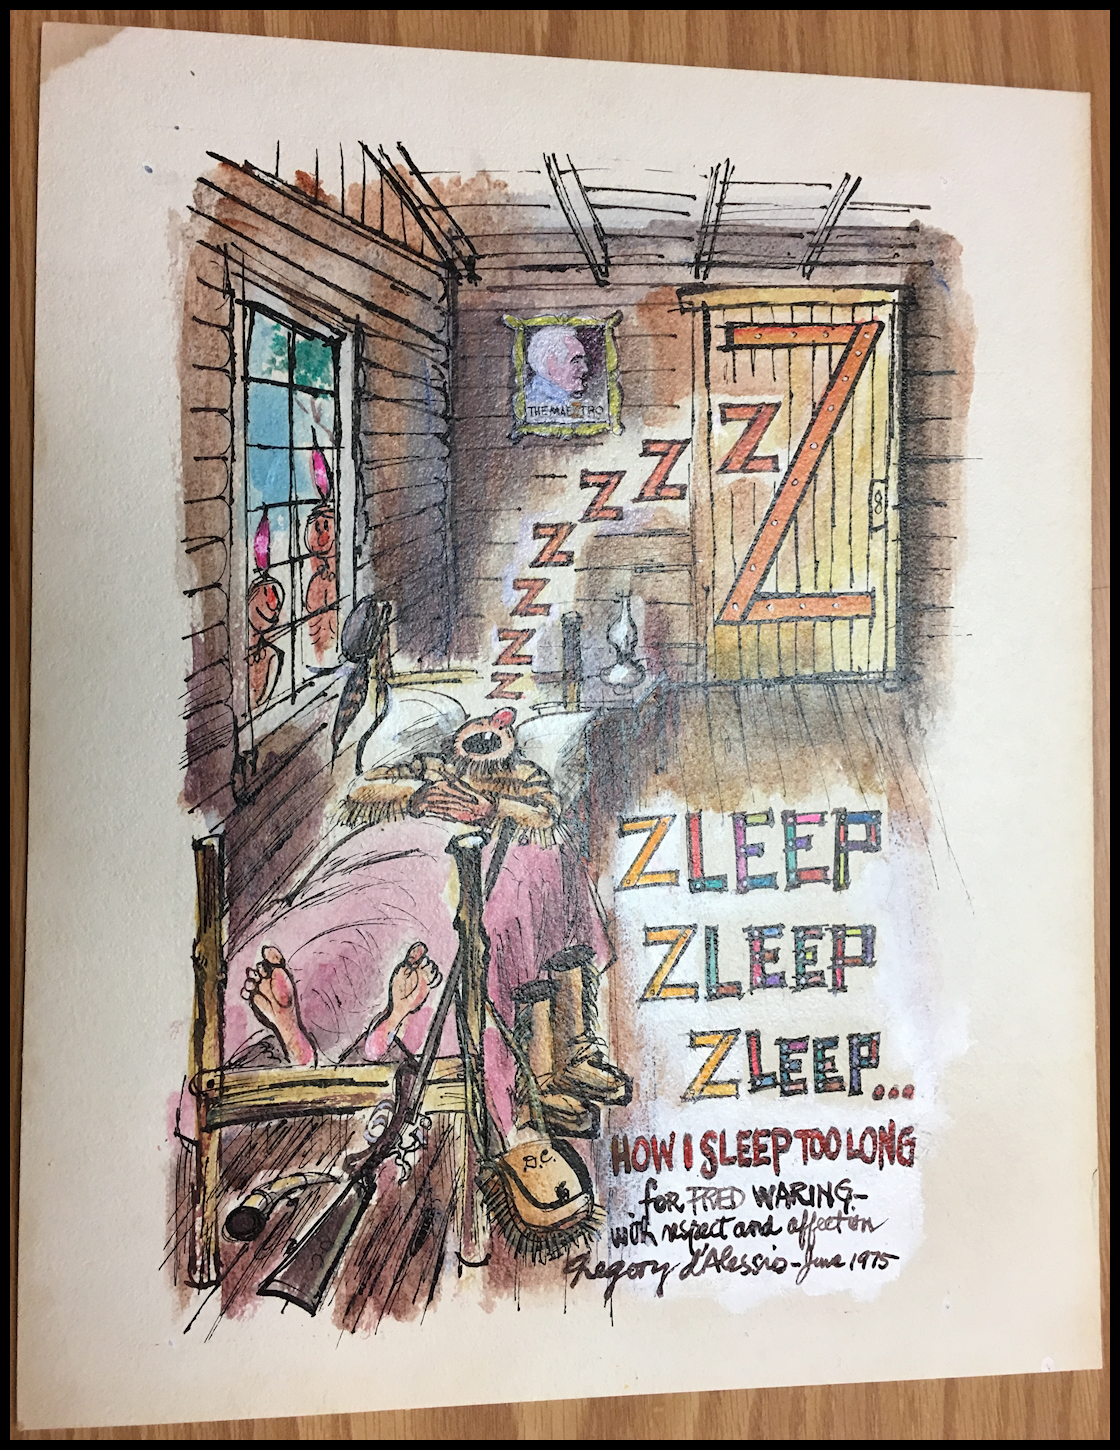 THE MAESTRO
Z
Z
Z
Z
Z
Z
Z
Z
Z
ZLEEP
ZLEEP
ZLEEP...
D.C.
HOW I SLEEP TOO LONG
for FRED WARING-
with respect and affection
Gregory d'Alessio - June 1975